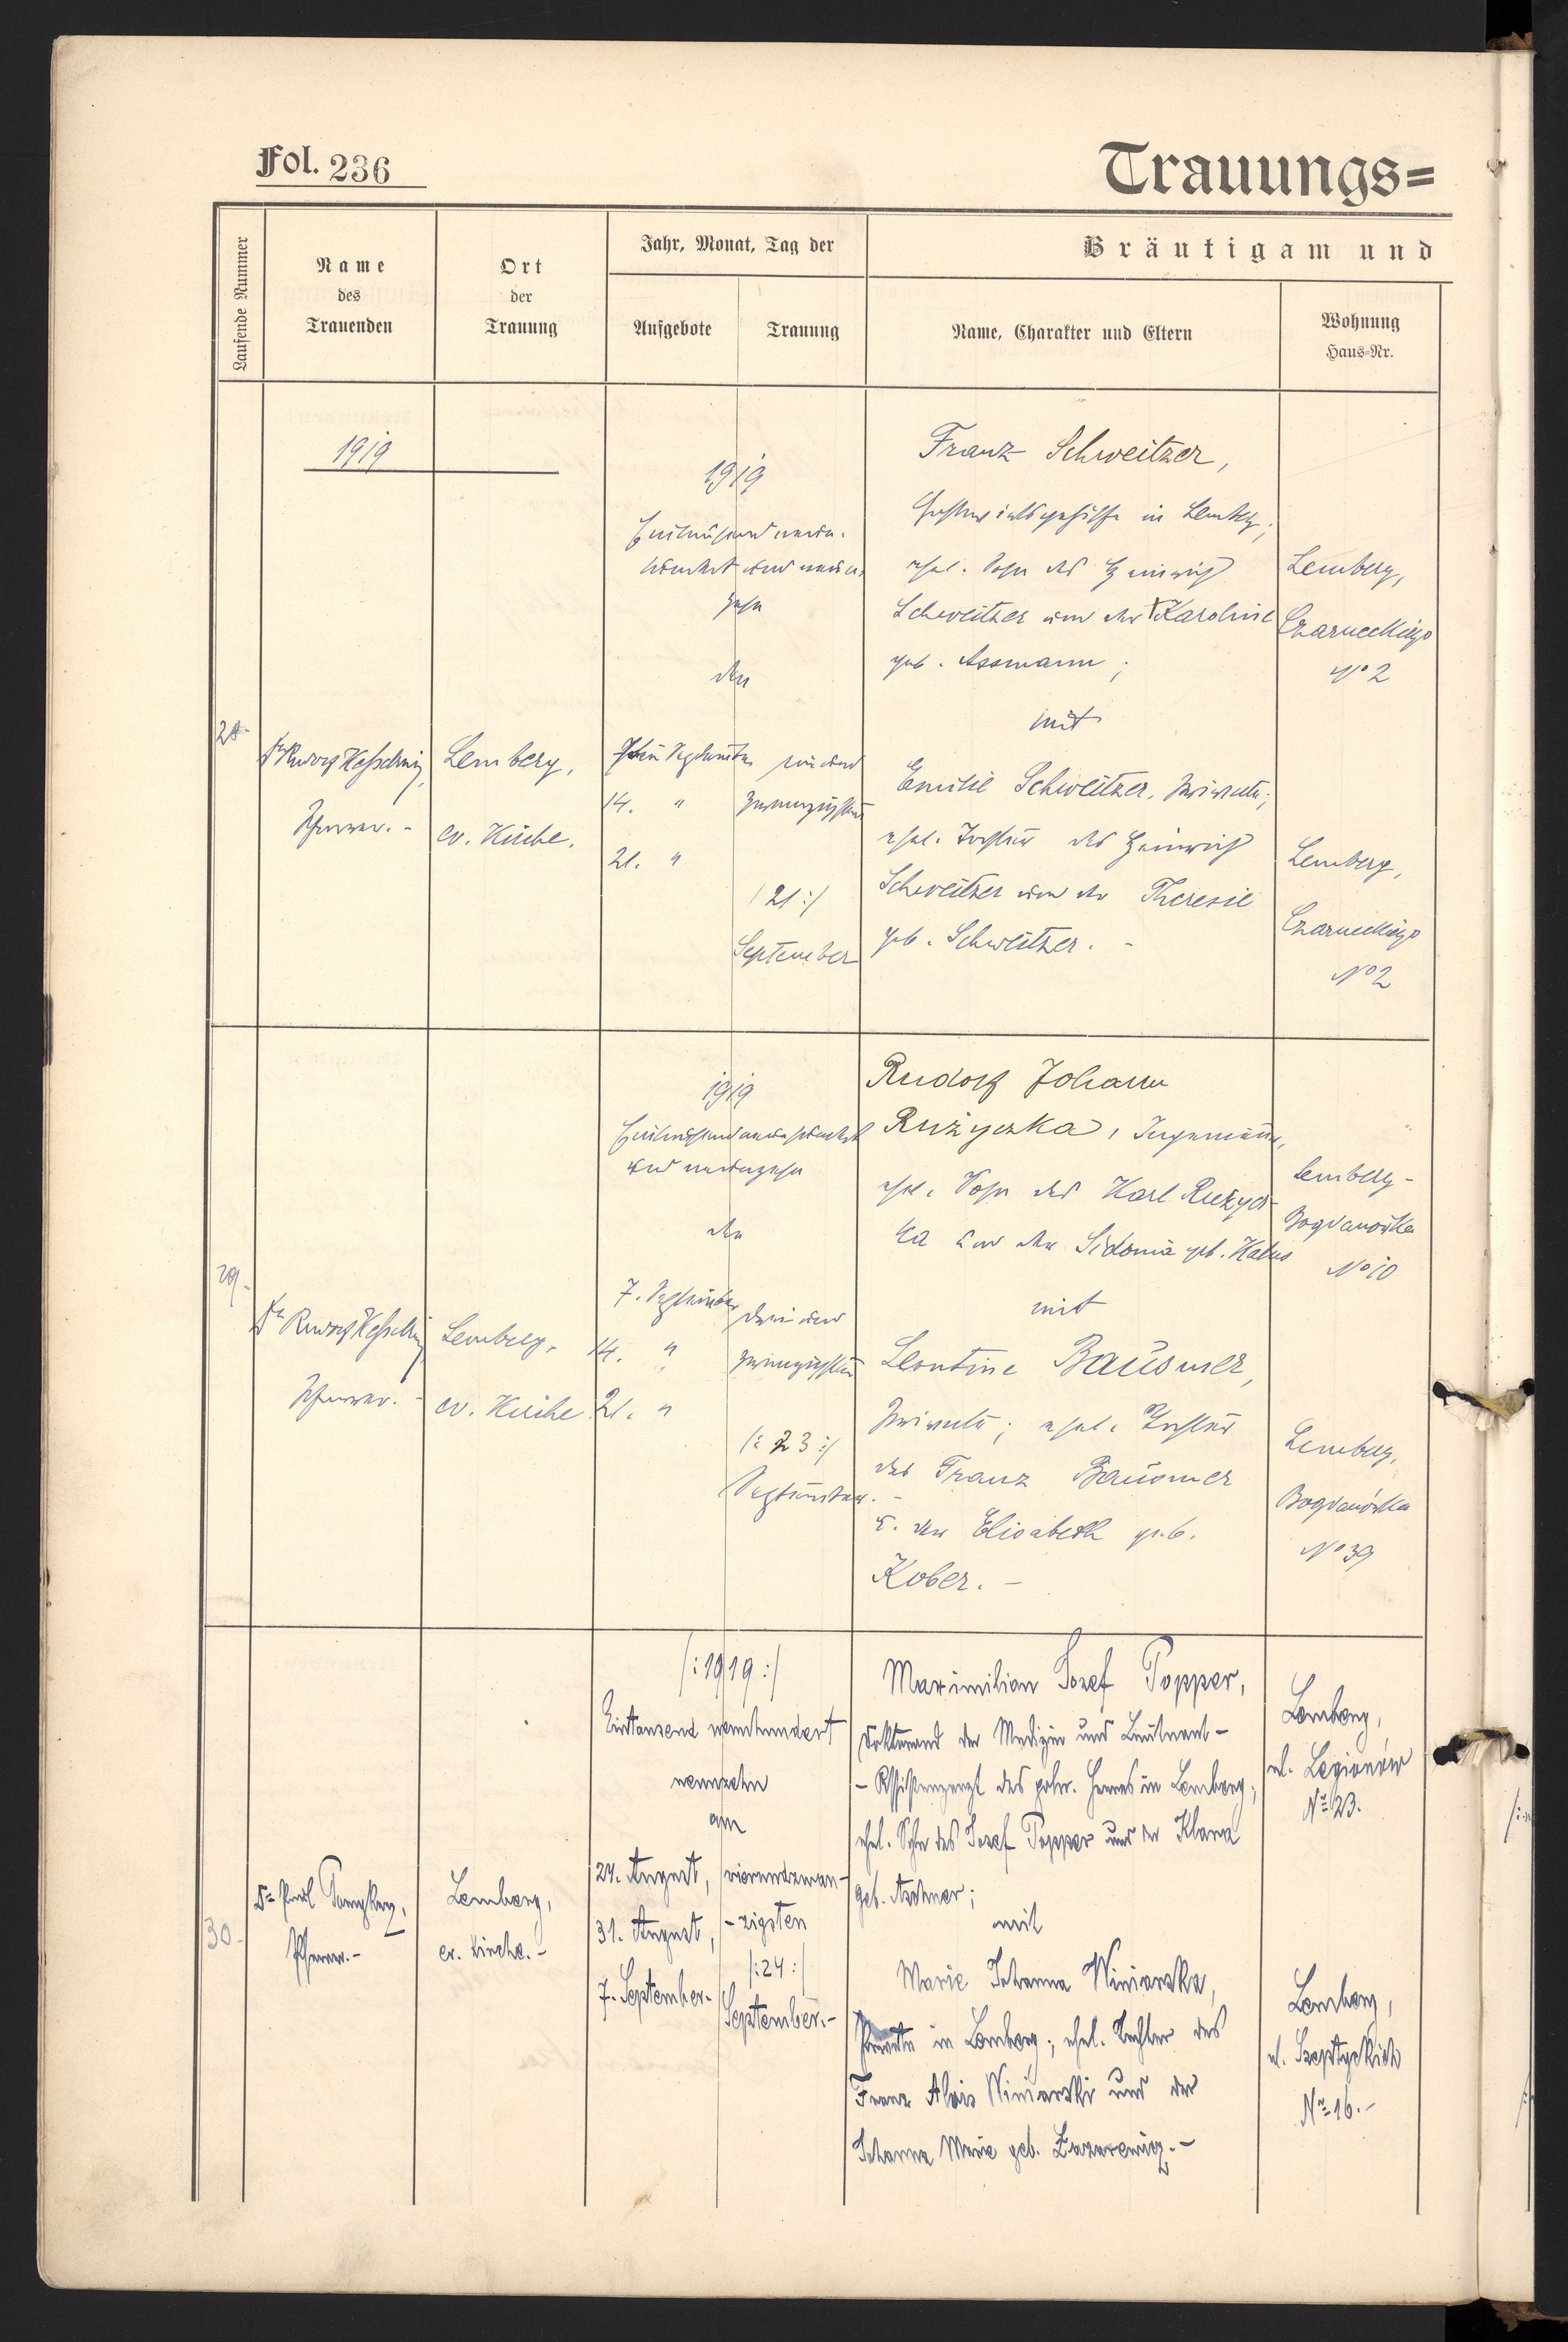 Fol. 236
Trauungs=
Laufende Nummer
Name
des
Trauenden
Ort
der
Trauung
Jahr, Monat, Tag der
Aufgebote
Trauung
Bräutigam und
Name, Charakter und Eltern
Wohnung
Haus-Nr.
1919
28.
Dr Rudolf Kesselring,
Pfarrer. -
Lemberg,
ev. Kirche.
1919
Eintausend neun-
hundert und neun-
zehn
den
7ten September
14. "
21. "
ein und
zwanzigsten
/ 21 :/
September
Franz Schweitzer,
in Lemberg;
ehel. Sohn des Heinrich
Schweitzer und der † Karoline
geb. Assmann;
mit
Emilie Schweitzer, Private;
ehel. Tochter des Heinrich
Schweitzer und der Theresie
geb. Schweitzer. -
Lemberg,
Czarneckiego
No 2
Lemberg,
Czarneckiego
No 2
29.
Dr Rudolf Kesselring,
Pfarrer. -
Lemberg,
ev. Kirche
1919
Eintausendneunhundert
und neunzehn
den
7. September
14. "
21. "
drei und
zwanzigsten
/: 23 :/
September. -
Rudolf Johann
Ružyczka, Ingenieur,
ehel. Sohn des Karl Ružycz-
ka und der Sidonie geb.
mit
Leontine Bausmer,
Private; ehel. Tochter
des Franz Bausmer
u. der Elisabeth geb.
Kober. -
Lemberg -
Bogdanówka
No 10
Lemberg,
Bogdanówka
No 39
30.
Dr
Pfarrer. -
Lemberg,
ev. Kirche. -
/: 1919 :/
Eintausend neunhundert
neunzehn
am
24. August,
31. August,
7. September.
vierundzwan-
- zigsten
/: 24 :/
September. -
Maximilian Josef Popper,
Doktorand der Medizin und Leutnant -
- Assistenzarzt des poln. Heeres in Lemberg;
ehel. Sohn des Josef Popper und der Klara
geb.
mit
Marie Johanna Winiarska,
Private in Lemberg; ehel. Tochter des
Franz Alois Winiarski und der
Johanna Marie geb. Lazarewicz. -
Lemberg,
ul. Legionów
No 23.
Lemberg,
ul. Szeptyckich
No 16. -